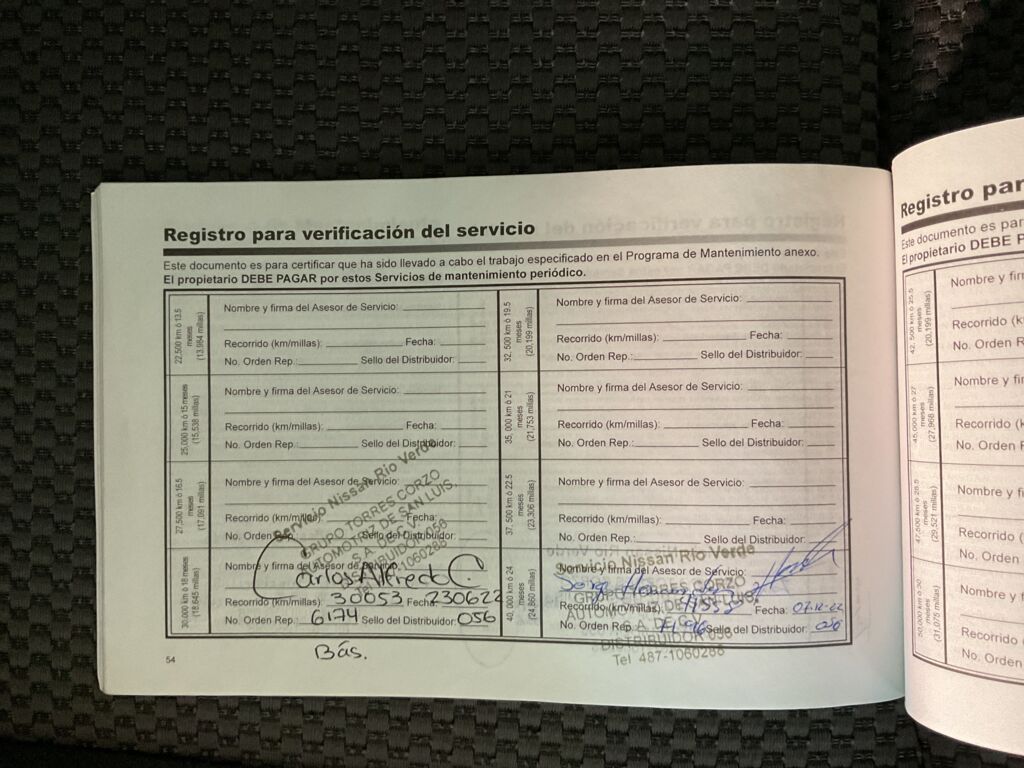 Registro para verificación del servicio
Este documento es para certificar que ha sido llevado a cabo el trabajo especificado en el Programa de Mantenimiento anexo.
El propietario DEBE PAGAR por estos Servicios de mantenimiento periódico.
22,500 km ó 13.5
meses
(13,984 millas)
Nombre y firma del Asesor de Servicio:
Recorrido (km/millas): Fecha:
No. Orden Rep.: Sello del Distribuidor:
25,000 km ó 15 meses
(15,538 millas)
Nombre y firma del Asesor de Servicio:
Recorrido (km/millas): Fecha:
No. Orden Rep.: Sello del Distribuidor:
27,500 km ó 16.5
meses
(17,091 millas)
Nombre y firma del Asesor de Servicio:
Recorrido (km/millas): Fecha:
No. Orden Rep.: Sello del Distribuidor:
Servicio Nissan Rio Verde
GRUPO TORRES CORZO
AUTOMOTRIZ DE SAN LUIS,
S.A. DE C.V.
DISTRIBUIDOR 056
1060286
30,000 km ó 18 meses
(18,645 millas)
Nombre y firma del Asesor de Servicio:
Carlos Alfredo C.
Recorrido (km/millas): 30053 Fecha: 230622
No. Orden Rep. 6174 Sello del Distribuidor: 056
Bás.
54
32, 500 km ó 19.5
meses
(20,199 millas)
Nombre y firma del Asesor de Servicio:
Recorrido (km/millas): Fecha:
No. Orden Rep.: Sello del Distribuidor:
35, 000 km ó 21
meses
(21,753 millas)
Nombre y firma del Asesor de Servicio:
Recorrido (km/millas): Fecha:
No. Orden Rep.: Sello del Distribuidor:
37, 500 km ó 22.5
meses
(23,306 millas)
Nombre y firma del Asesor de Servicio:
Recorrido (km/millas): Fecha:
No. Orden Rep.: Sello del Distribuidor:
40, 000 km ó 24
meses
(24,860 millas)
Servicio Nissan Rio Verde
Nombre y firma del Asesor de Servicio:
GRUPO TORRES CORZO
Recorrido (km/millas): Fecha: 07-12-22
AUTOMOTRIZ DE SAN LUIS,
S.A. DE C.V.
No. Orden Rep. Sello del Distribuidor: 056
DISTRIBUIDOR 056
Tel 487-1060286
Registro par
Este documento es par
El propietario DEBE P
42, 500 km ó 25.5
meses
Nombre y firm
Recorrido (k
No. Orden R
45,000 km ó 27
meses
(27,968 millas)
Nombre y firm
Recorrido (k
No. Orden R
47,500 km ó 28.5
meses
(29,521 millas)
Nombre y f
Recorrido
No. Orden
50,000 km ó 30
meses
(31,075 millas)
Nombre y
Recorrido
No. Orden